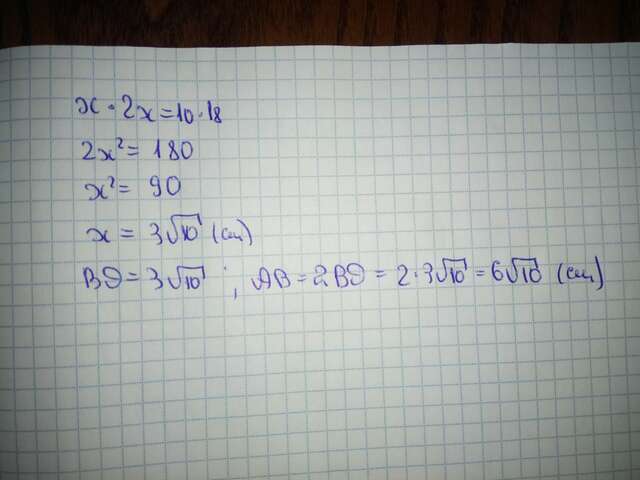 x · 2x = 10 · 18
2x² = 180
x² = 90
x = 3√10 (см)
BD = 3√10 ; AB = 2BD = 2 · 3√10 = 6√10 (см)